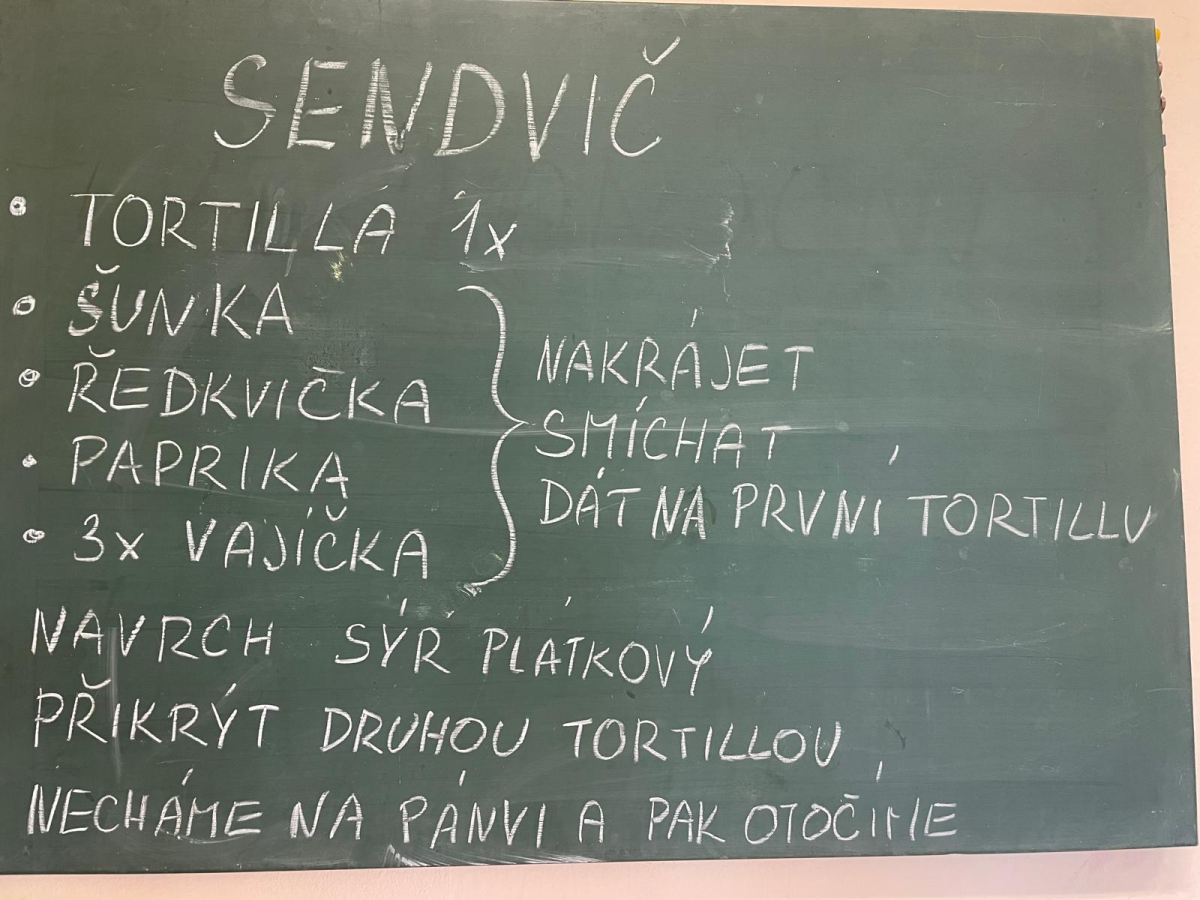 SENDVIČ
• TORTILLA 1x
• ŠUNKA
• ŘEDKVIČKA
• PAPRIKA
• 3x VAJÍČKA
NAKRÁJET
SMÍCHAT
DÁT NA PRVNÍ TORTILLU
NAVRCH SÝR PLÁTKOVÝ
PŘIKRÝT DRUHOU TORTILLOU
NECHÁME NA PÁNVI A PAK OTOČÍME